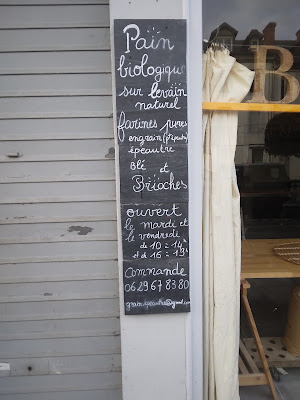 Païn
biologique
sur levain
naturel
farines pures
engrain (p'tépeautre)
épeautre
Blé et
Brioches
ouvert
le mardi et
le vendredi
de 10 - 14h
et d 16 - 19h
Commande
06 29 67 83 80
B